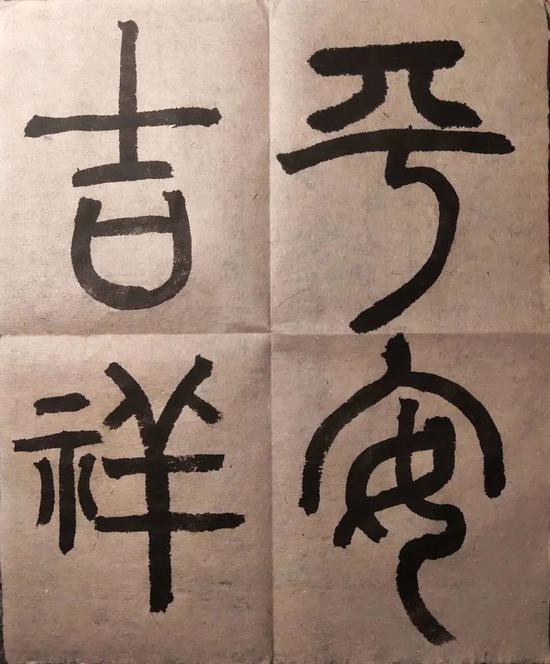 平安
吉祥